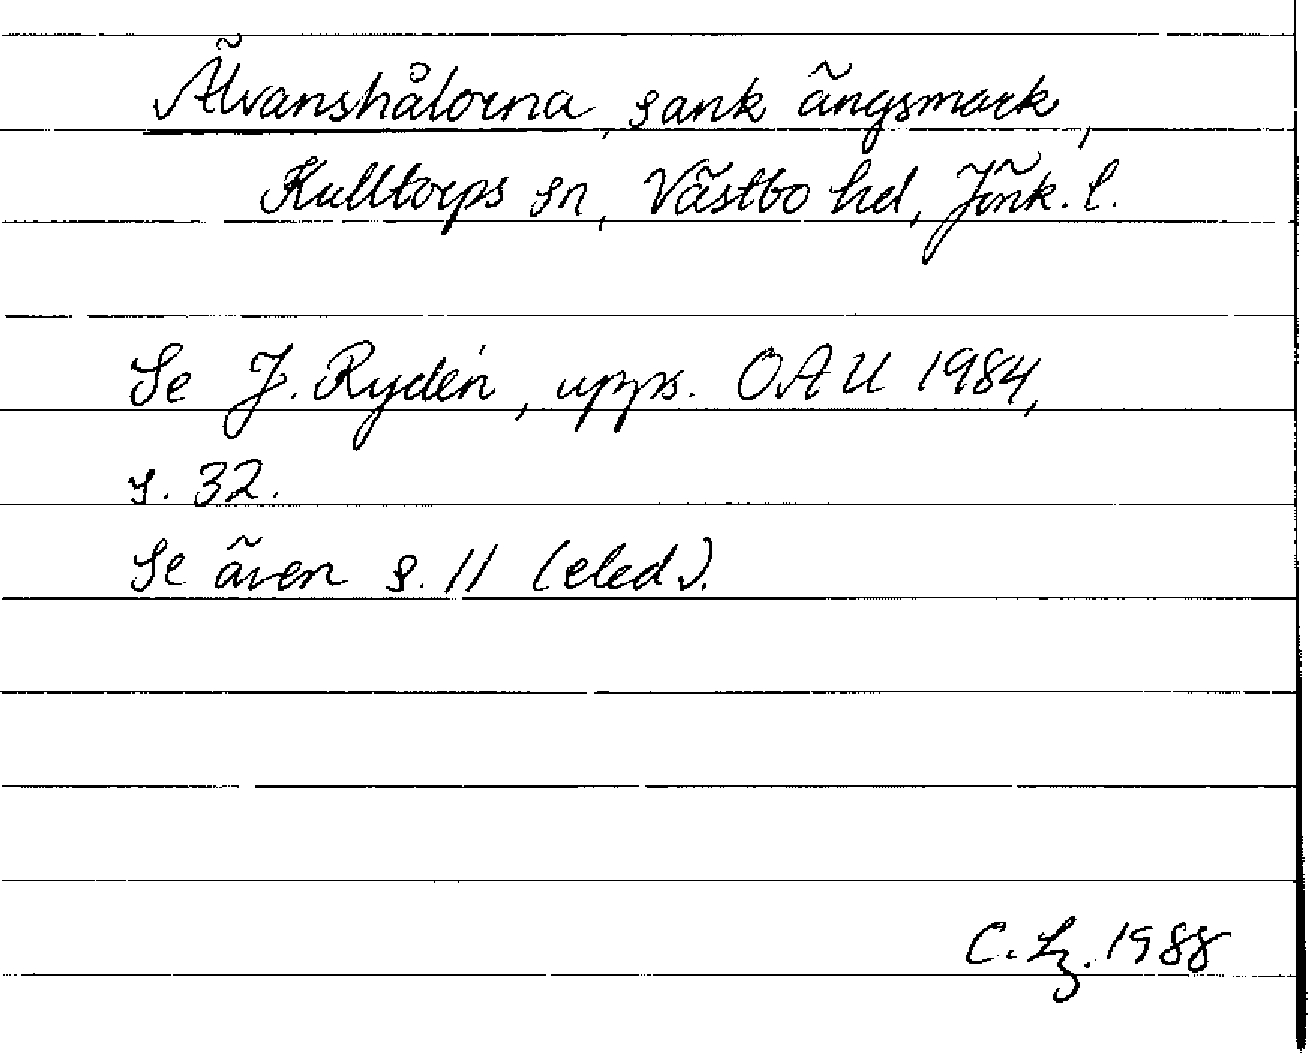 Älvanshålorna, sank ängsmark,
Kulltorps sn, Västbo hd, Jönk. l.
Se J. Rydén, upps. OAU 1984,
s. 32.
Se även s. 11 (eled.).
C. Lz. 1988